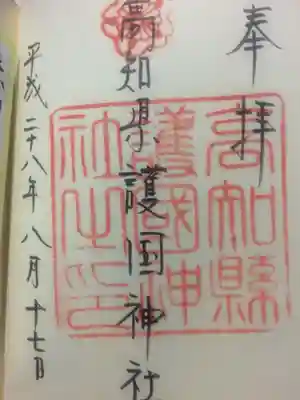 奉拝
高知県護国神社
高知縣
護國神
社之印
平成二十八年八月十七日